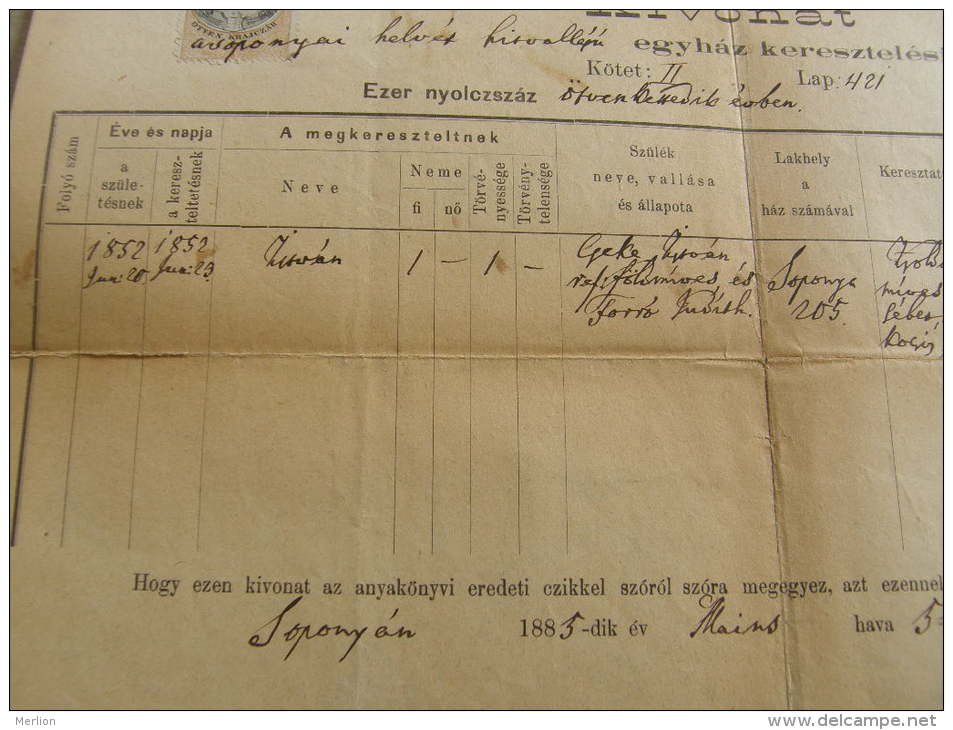 ÖTVEN KRAJCZÁR
Kivonat
a soponyai helvét hitvallású egyház keresztelési
Kötet: II Lap: 421
Ezer nyolczszáz ötvenkettedik évben.
Folyó szám
Éve és napja
a születésnek
a keresz-
teltetésnek
A megkereszteltnek
Neve
Neme
fi nő
Törvé-
nyessége
Törvény-
telensége
Szülék
neve, vallása
és állapota
Lakhely
a
ház számával
Keresztat
1852
Jun: 20
1852
Jun: 23
István
1 – 1 –
Czeke István
ref. földmíves és
Forró Judith.
Soponya
205.
Földm
míves
Hogy ezen kivonat az anyakönyvi eredeti czikkel szóról szóra megegyez, azt ezennel
Soponyán 1885-dik év Május hava 5
Merlion
www.delcampe.net